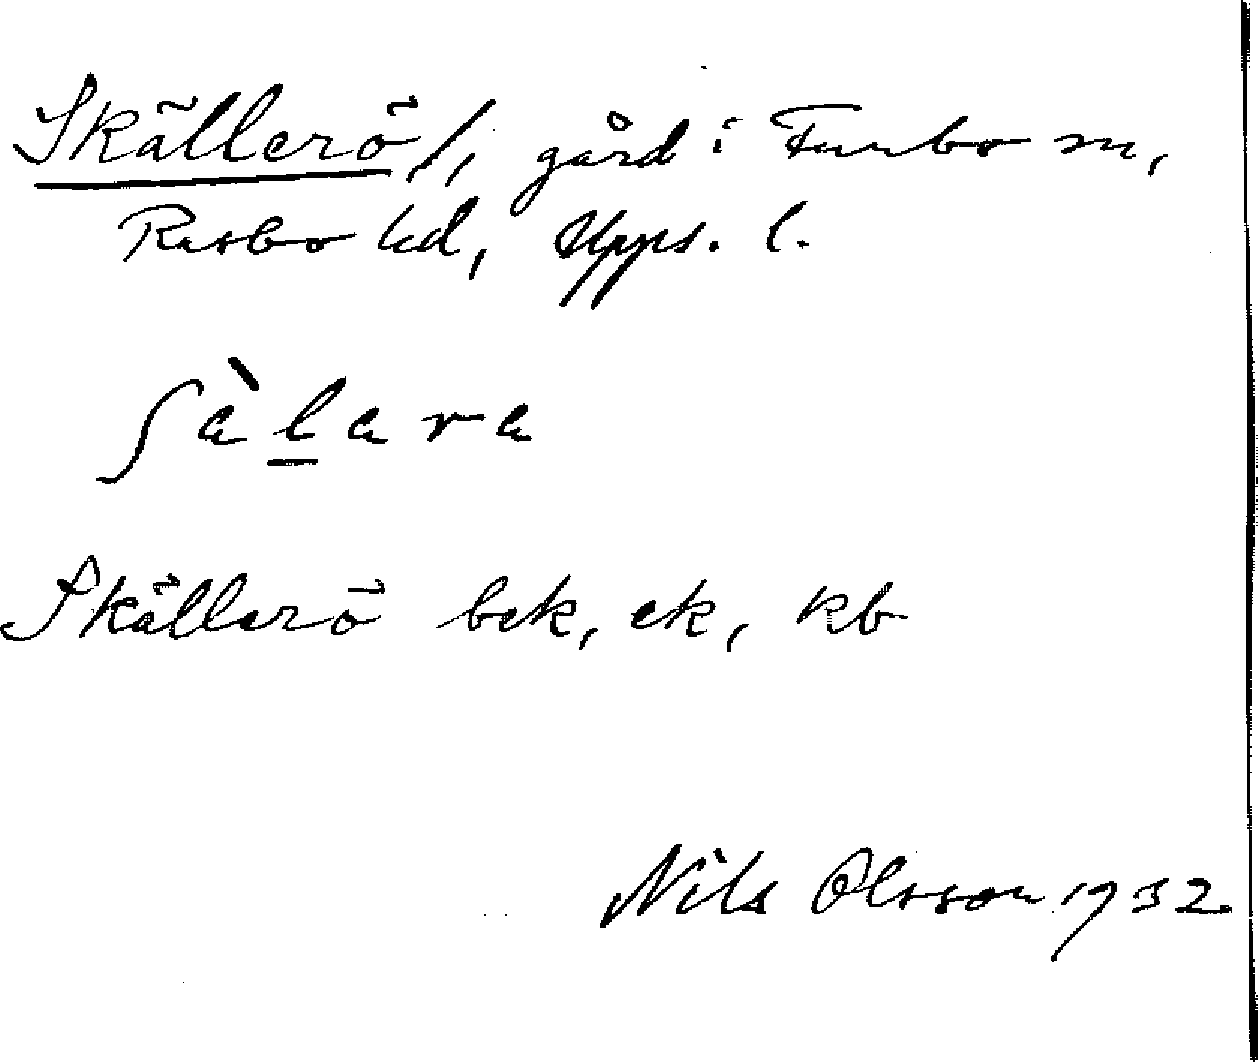 Skällerö/, gård i Funbo sn,
Rasbo hd, Upps. l.
ʃàlara
Skällerö bek, ek, kb
Nils Olsson 1932